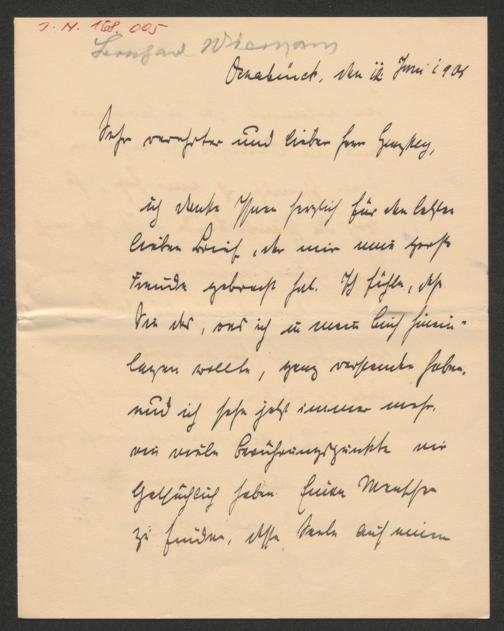 I. N. 168.005
Bernhard Wiemann
Osnabrück, den 12 Juni 190
Sehr verehrter und lieber Herr
ich danke Ihnen herzlich für den letzten
lieben Brief, der mir eine große
Freude gebracht hat. Ich fühle, daß
Sie das, was ich in mein Buch hinein-
legen wollte, ganz verstanden haben.
und ich sehe jetzt immer mehr,
wie viele Berührungspunkte wir
haben. Einen Menschen
zu finden, dessen Seele auf einen